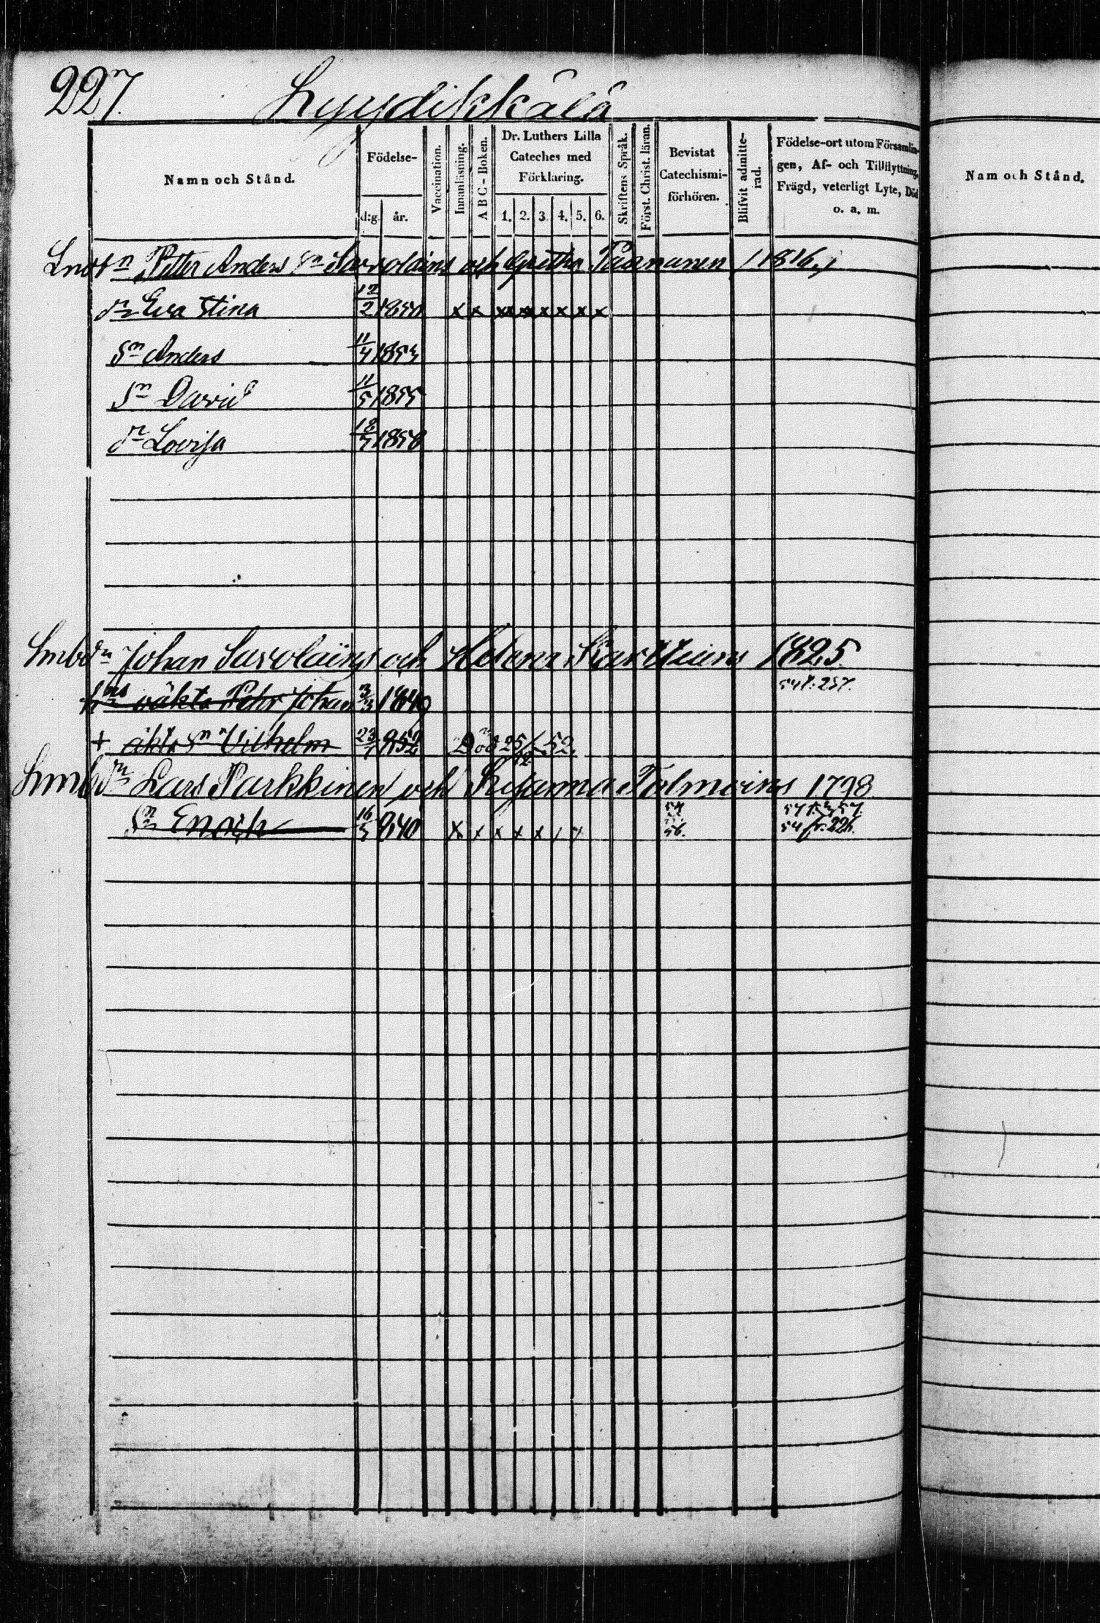 227.
Lyydikkälä
Namn och Stånd.
Födelse-
d:g. år.
Vaccination.
Innanläsning.
A B C - Boken.
Dr. Luthers Lilla Cateches med Förklaring.
1. 2. 3. 4. 5. 6.
Skriftens Språk.
Först. Christ. läran.
Bevistat Catechismi-förhören.
Blifvit admitte-rad.
Födelse-ort utom Församlin-gen, Af- och Tillflyttning, Frägd, veterligt Lyte, Död o. a. m.
Namn och Stånd.
Petter Anders Sn Savolains och Gretha Paananen 1816
dr Eva Stina 12/2 1850 x x x x x x x x
Sn Anders 11/4 1853
Sn David 11/5 1855
dr Lovisa 18/5 1858
Johan Savolains och Helena 1825
Pehr Johan 3/3 1849 54 f. 257.
+ äkta Sn Vilhelm 23/7 852 Död 25/12 52.
Lars Parkkinen och Susanna Tolmains 1798
Sn Enoch 16/5 840 x x x x x 54 56. 54 fr. 226.